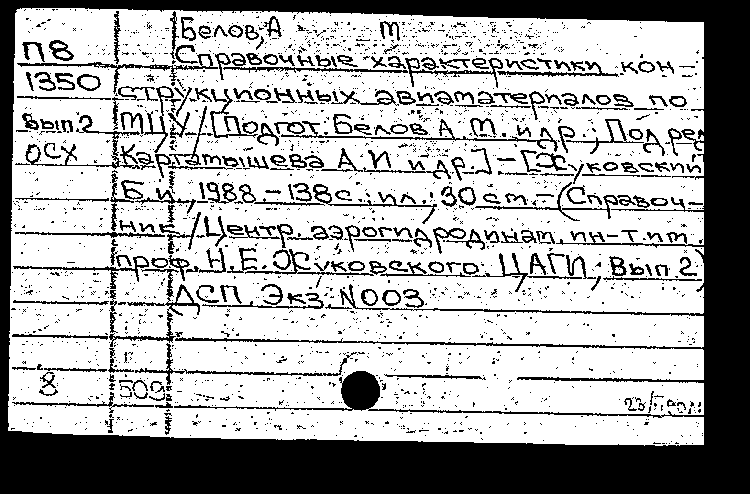 Белов, А М
П8 Справочные характеристики кон-
1350 струкционных авиаматериалов по
Вып.2 МПУ / [Подгот. Белов А. М. и др.; Под ред
ОСХ Картамышева А. И. и др.] - [Жуковский
Б. и., 1988. - 138 с.; ил.; 30 см. - (Справоч-
ник / Центр. аэрогидродинам. ин-т. им.
проф. Н. Е. Жуковского. ЦАГИ; Вып 2)
ДСП. Экз. N003
8 509